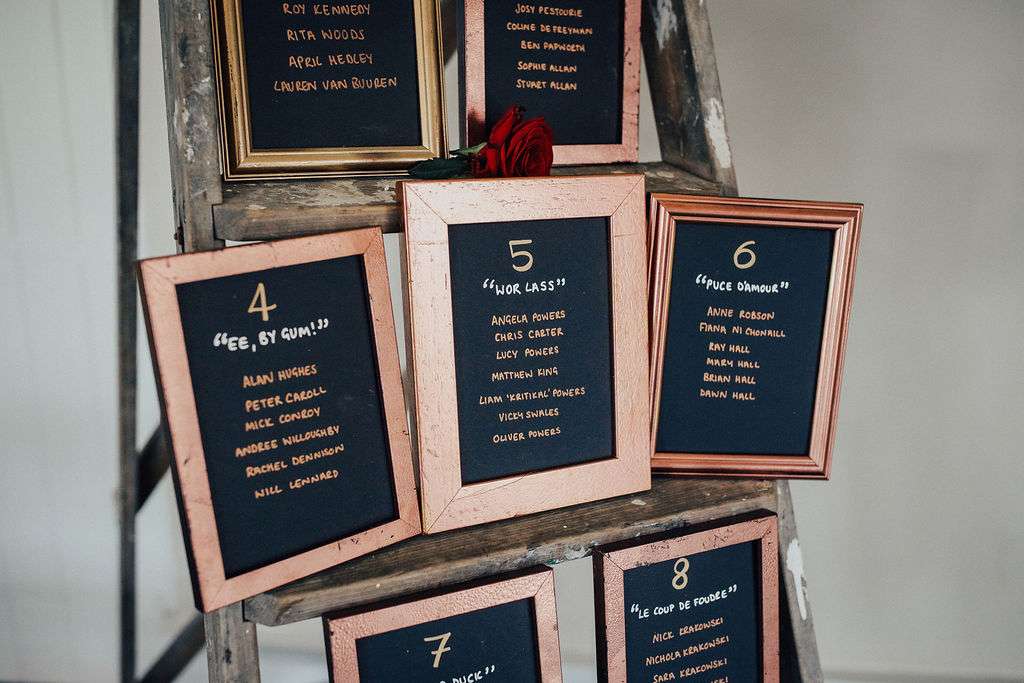 ROY KENNEDY
RITA WOODS
APRIL HEDLEY
LAUREN VAN BUUREN
JOSY PESTOURIE
COLINE DE FREYMAN
BEN PAPWORTH
SOPHIE ALLAN
STUART ALLAN
4
"EE, BY GUM!"
ALAN HUGHES
PETER CAROLL
MICK CONROY
ANDREE WILLOUGHBY
RACHEL DENNISON
WILL LENNARD
5
"WOR LASS"
ANGELA POWERS
CHRIS CARTER
LUCY POWERS
MATTHEW KING
LIAM 'KRITIKAL' POWERS
VICKY SWALES
OLIVER POWERS
6
"PUCE D'AMOUR"
ANNE ROBSON
FIANA NI CHONAILL
RAY HALL
MARY HALL
BRIAN HALL
DAWN HALL
7
DUCK"
8
"LE COUP DE FOUDRE"
NICK KRAKOWSKI
NICHOLA KRAKOWSKI
SARA KRAKOWSKI